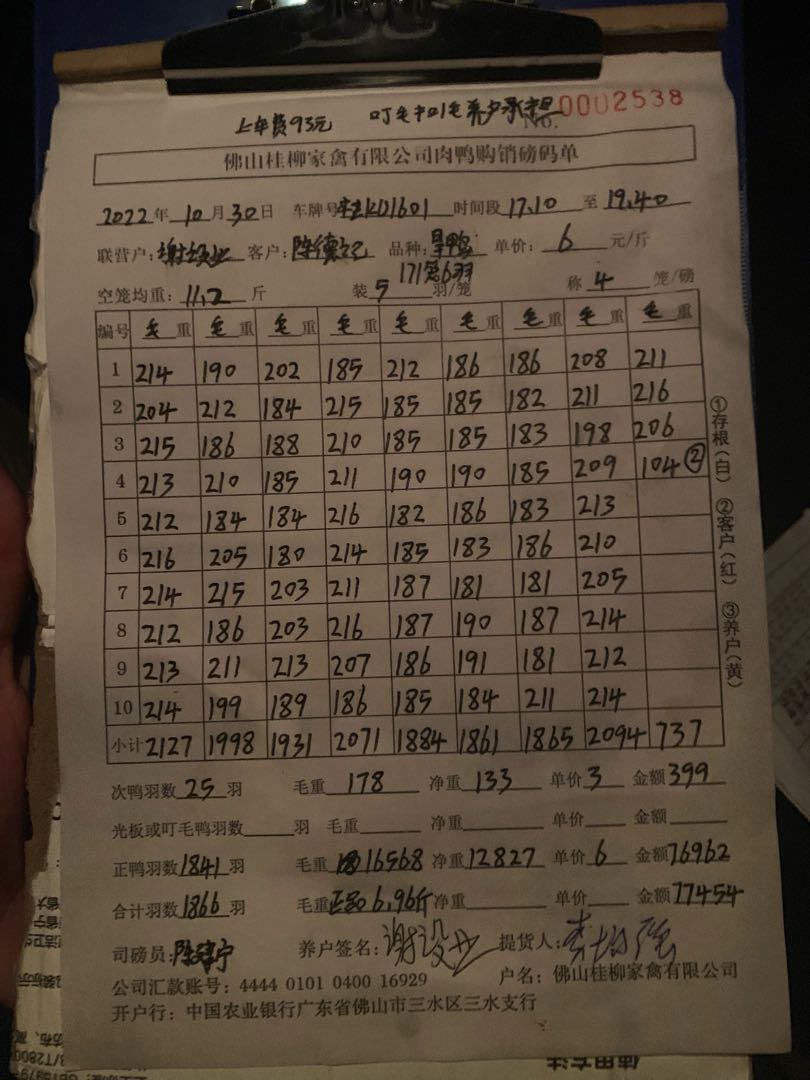 上车费93元 叮毛中叫毛养户承担 NO.0002538
佛山桂柳家禽有限公司肉鸭购销磅码单
2022年10月30日 车牌号 K01601 时间段17.10至19.40
联营户: 客户:陈德记 品种: 鸭 单价:6元/斤
171笼6羽
空笼均重:11.2斤 装5羽/笼 称4笼/磅
编号 毛重 毛重 毛重 毛重 毛重 毛重 毛重 毛重 毛重
1 214 190 202 185 212 186 186 208 211
2 204 212 184 215 185 185 182 211 216
3 215 186 188 210 185 185 183 198 206
4 213 210 185 211 190 190 185 209 104②
5 212 184 184 216 182 186 183 213
6 216 205 180 214 185 183 186 210
7 214 215 203 211 187 181 181 205
8 212 186 203 216 187 190 187 214
9 213 211 213 207 186 191 181 212
10 214 199 189 186 185 184 211 214
小计 2127 1998 1931 2071 1884 1861 1865 2094 737
次鸭羽数25羽 毛重178 净重133 单价3 金额399
光板或叮毛鸭羽数 羽 毛重 净重 单价 金额
正鸭羽数1841羽 毛重16568 净重12827 单价6 金额76962
合计羽数1866羽 毛重正品6.96斤 净重 单价 金额77454
司磅员:陈建宁 养户签名:谢设业 提货人:
公司汇款账号:4444 0101 0400 16929 户名:佛山桂柳家禽有限公司
开户行:中国农业银行广东省佛山市三水区三水支行
①存根(白) ②客户(红) ③养户(黄)
使用方法